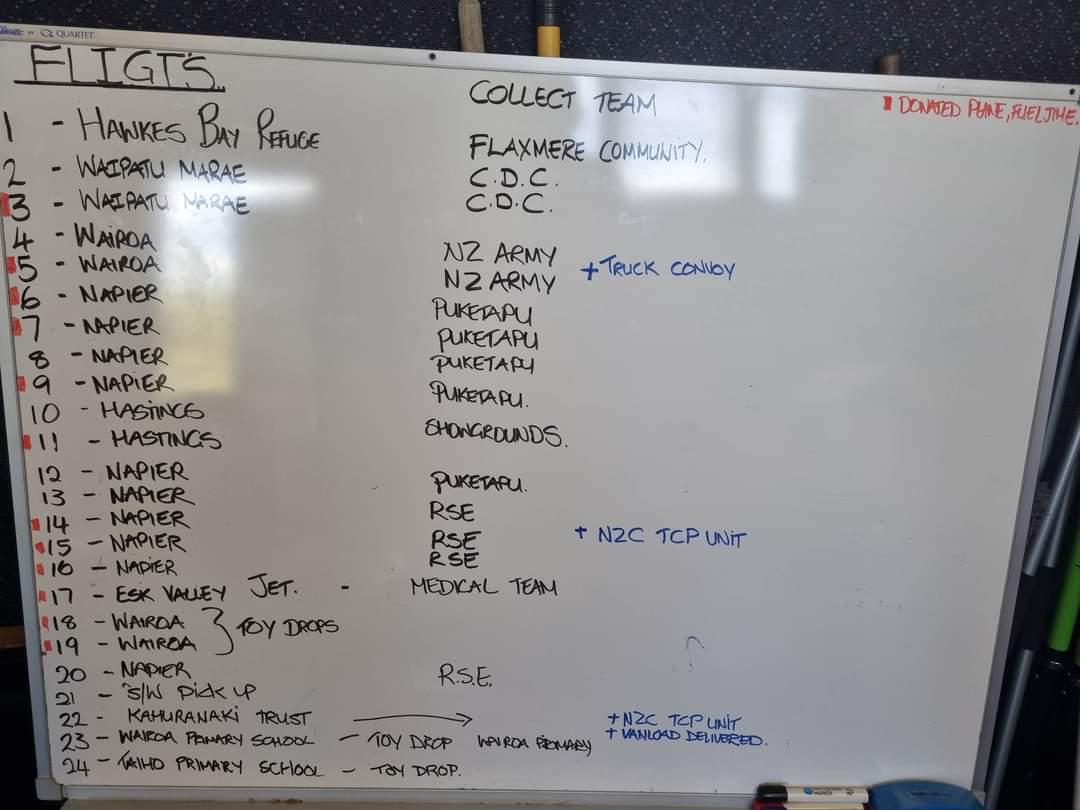 BY QUARTET
FLIGT'S
COLLECT TEAM
DONATED PLANE, FUEL, TIME.
1 - HAWKES BAY REFUGE
FLAXMERE COMMUNITY.
2 - WAIPATU MARAE
C.D.C.
3 - WAIPATU MARAE
C.D.C.
4 - WAIROA
NZ ARMY
5 - WAIROA
NZ ARMY
+ TRUCK CONVOY
6 - NAPIER
PUKETAPU
7 - NAPIER
PUKETAPU
8 - NAPIER
PUKETAPU
9 - NAPIER
PUKETAPU.
10 - HASTINGS
11 - HASTINGS
SHOWGROUNDS.
12 - NAPIER
PUKETAPU.
13 - NAPIER
RSE
14 - NAPIER
RSE
+ NZC TCP UNIT
15 - NAPIER
RSE
16 - NAPIER
17 - ESK VALLEY JET. - MEDICAL TEAM
18 - WAIROA
19 - WAIROA
} TOY DROPS
20 - NAPIER
R.S.E.
21 - S/W PICK UP
22 - KAHURANAKI TRUST
+ NZC TCP UNIT
+ VANLOAD DELIVERED.
23 - WAIROA PRIMARY SCHOOL - TOY DROP WAIROA PRIMARY
24 - TAIHO PRIMARY SCHOOL - TOY DROP.